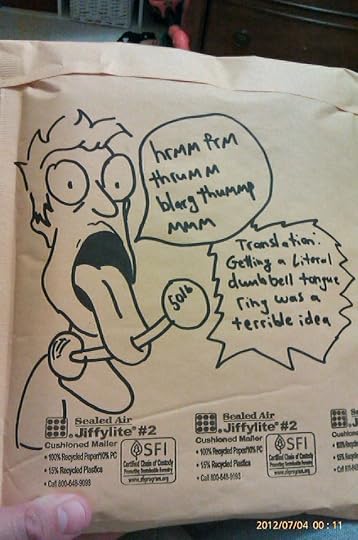 hrmm frm
thrumm
blarg thummp
mmm
Translation:
Getting a Literal
dumbbell tongue
ring was a
terrible idea
50lb
Sealed Air
Jiffylite® #2
Cushioned Mailer
• 100% Recycled Paper/10% PC
• 15% Recycled Plastics
• Call 800-648-9093
SFI
Certified Chain of Custody
Promoting Sustainable Forestry
www.sfiprogram.org
Sealed Air
Jiffylite® #2
Cushioned Mailer
• 100% Recycled Paper/10% PC
• 15% Recycled Plastics
• Call 800-648-9093
SFI
Certified Chain of Custody
Promoting Sustainable Forestry
www.sfiprogram.org
2012/07/04 00:11